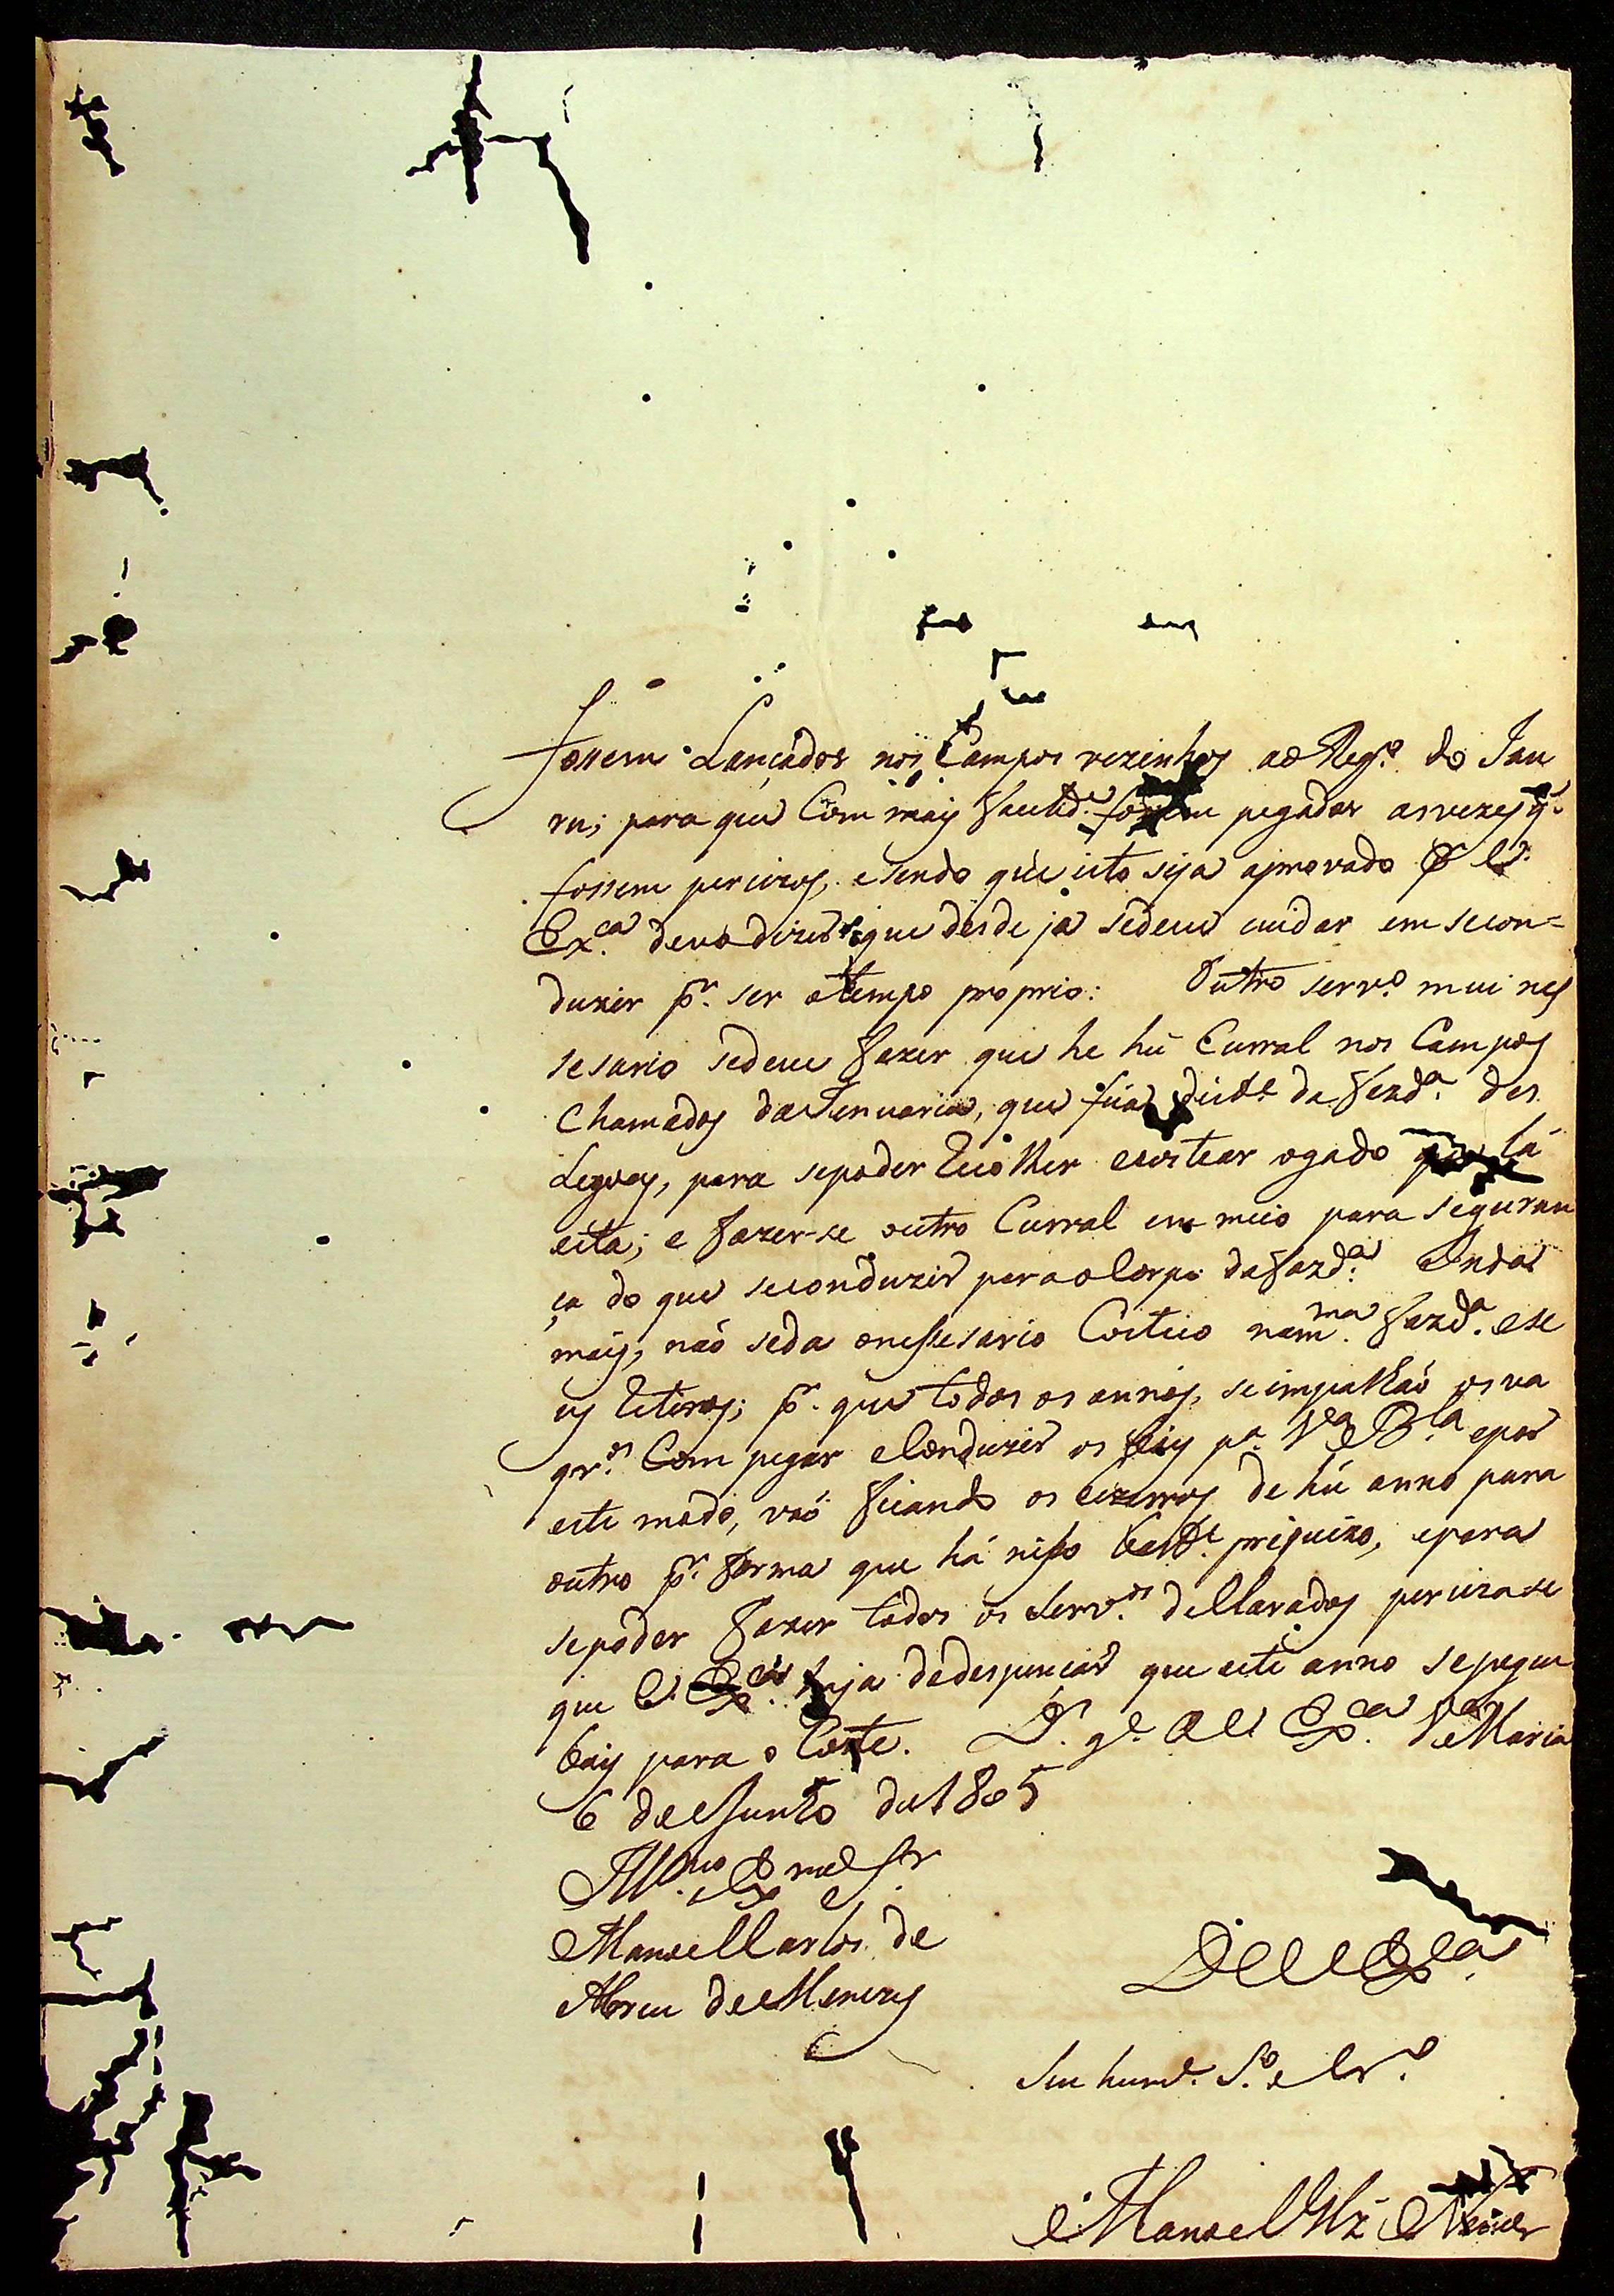 fossem Lançados nos Campos vezinhos ao Regº do Jau
ru; para que Com maiz facilidᵉ fossem pegados as vezes q̃
fossem percizos, e sendo que isto seja aprovado pʳ V.
Exᶜᵃ devo dizer que desde ja sedeve cuidar em secon=
duzir pʳ ser o tempo proprio: Outro servº mui nes
sesario sedeve fazer que he hũ Curral nos Campos
Chamados da Jenuaria, que fica diste da Fazdª des
Legoas, para sepoder Recolher e costear ogado que lá
esta; e fazer-se outro Curral em meio para seguran
ça do que seconduzir para o Corpo da fazdª. Inda
maiz, não seda o nessesario Costeio na mᵐᵃ fazdª. e se
us Retiros; pʳ que todos os annos, se impalhão os va
qrᵒˢ Com pegar e Conduzir os bois pª Vª Bᶜᵃ e por
este modo, vão ficando os bizerros de hũ anno para
outro pʳ forma que há nisso bastᵉ prejuizo, e para
sepoder fazer todos os Servᵒˢ declarados percizase
que V. Exᶜⁱᵃ haja de despençar que este anno se pegue
bois para o Corte. D. gᵉ a V. Exᶜᵃ Vª Maria
6 de Junho de 1805
Illᵐᵒ Exᵐᵒ Sʳ
Manoel Carlos de
Abreu de Menezes
De V. Exᶜⁱᵃ
Seu humᵉ. Sº e Crº
Manoel